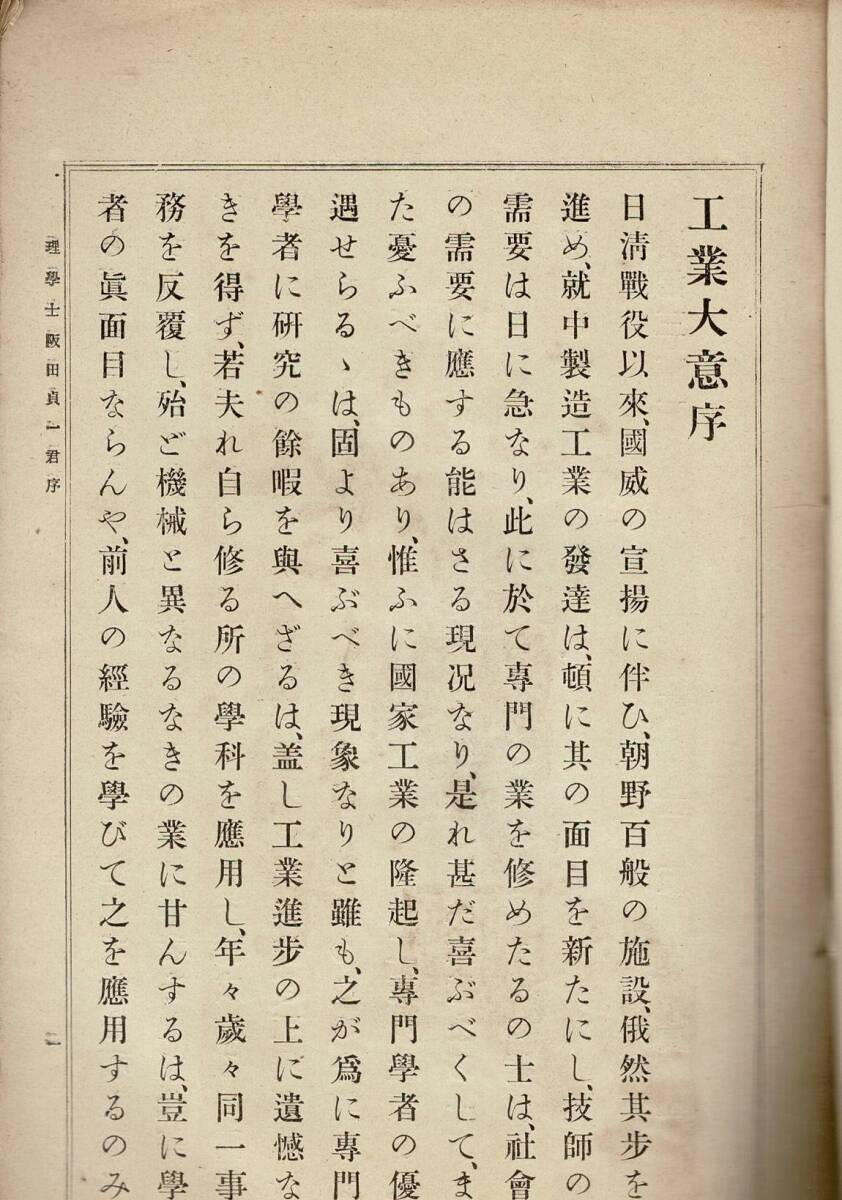 工業大意序
日淸戰役以來、國威の宣揚に伴ひ、朝野百般の施設、俄然其步を
進め、就中製造工業の發達は、頓に其の面目を新たにし、技師の
需要は日に急なり、此に於て專門の業を修めたるの士は、社會
の需要に應する能はさる現況なり、是れ甚だ喜ぶべくして、ま
た憂ふべきものあり、惟ふに國家工業の隆起し、專門學者の優
遇せらるゝは、固より喜ぶべき現象なりと雖も、之が爲に專門
學者に硏究の餘暇を與へざるは、盖し工業進步の上に遺憾な
きを得ず、若夫れ自ら修る所の學科を應用し、年々歲々同一事
務を反覆し、殆ど機械と異なるなきの業に甘んするは、豈に學
者の眞面目ならんや、前人の經驗を學びて之を應用するのみ
理學士阪田貞一君序
一